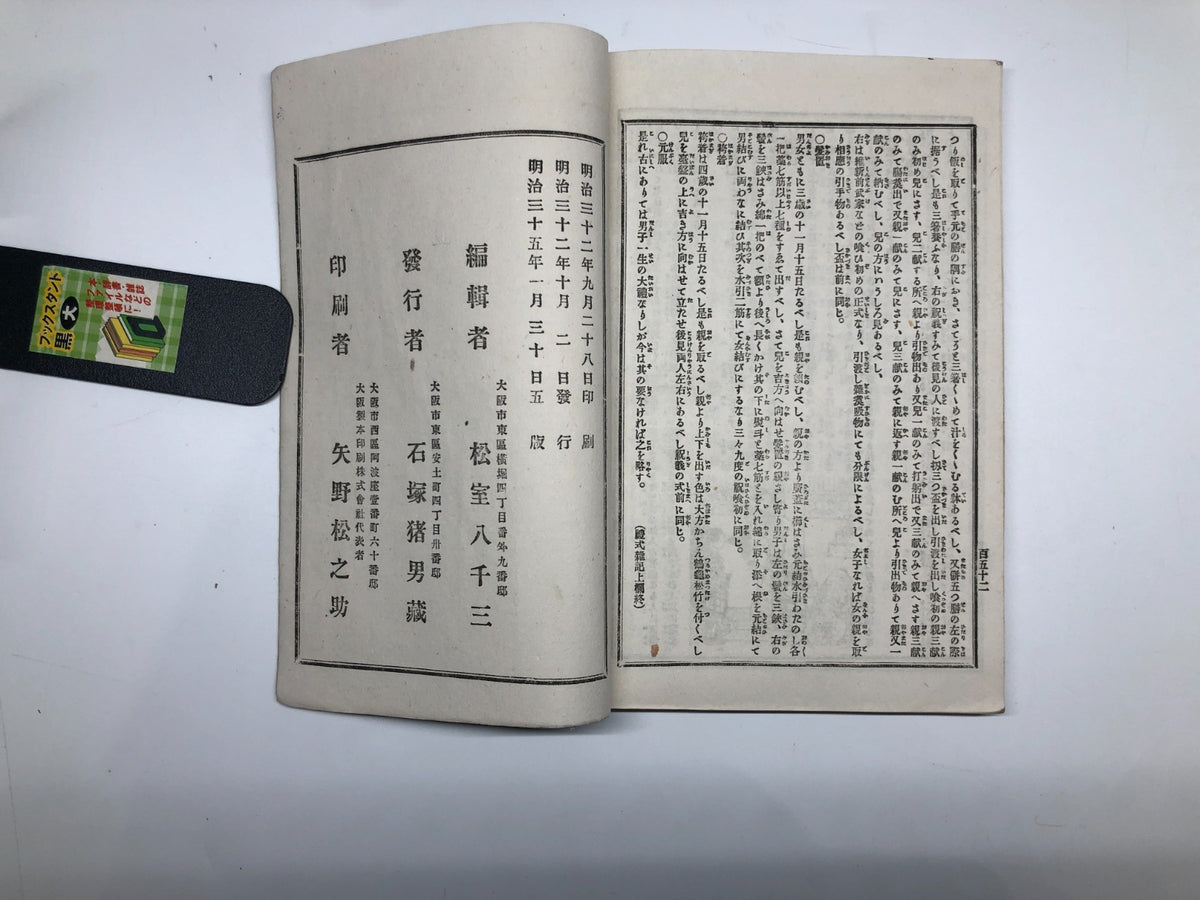 百五十二
つり飯を取りて手元の膳の隅におき、さてろと三箸くゝめて汁をくゝむる躰あるべし、又餅五つ膳の左の際
に据うべし是も三箸養ふなり、右の祝義すみて後見の人に渡すべし扨三つ盃を出し引渡を出し喰初の親三献
のみ初め兒にさす、兒二献する所へ親より引物出あり又兒一献のみて打躬出で又三献のみて親へさす親三献
のみて 出で又親一献のみて兒にさす、兒三献のみて親に返す親一献のむ所へ兒より引出物ありて親又一
献のみて納むべし、兒の方にハうしろ見あるべし、
右は維新前武家などの喰ひ初めの正式なり、引渡し 吸物にても分限によるべし、女子なれば女の親を取
り相應の引手物あるべし盃は前に同ヒ。
○髪置
男女ともに三歳の十一月十五日たるべし是も親を頼むべし、親の方より廣盃に櫛はさみ元結水引わたのし各
一把薬七筋以上七種をすゑて出すべし、さて兒を吉方へ向はせ髪置の親さし寄り男子は左の鬢を三鋏、右の
鬢を三鋏はさみ綿一把のべて額より後へ長くかけ其の下に熨斗と薬七筋とを入れ總に取り添へ根を元結にて
男結びに両わなに結び其次を水引二筋にて女結びにするなり三々九度の祝喰初に同ヒ。
○袴着
袴着は四歳の十一月十五日たるべし是も親を取るべし親より上下を出す色は大方かちん鶴龜松竹を付くべし
兒を臺盤の上に吉き方に向はせて立たせ後見両人左右にあるべし祝義の式前に同ヒ。
○元服
是れ古にありては男子一生の大禮なりしが今は其の要なければ之を略す。
(禮式雜記上欄終)
明治三十二年九月二十八日印刷
明治三十二年十月二日發行
明治三十五年一月三十日五版
大阪市東區横堀四丁目番外九番邸
編輯者 松室八千三
大阪市東區安土町四丁目卅番邸
發行者 石塚猪男藏
大阪市西區阿波座壹番町六十番邸
大阪製本印刷株式會社代表者
印刷者 矢野松之助
本・辞書・雑誌
ファイルなどの
整理整頓に!
ブックスタンド
黒 大